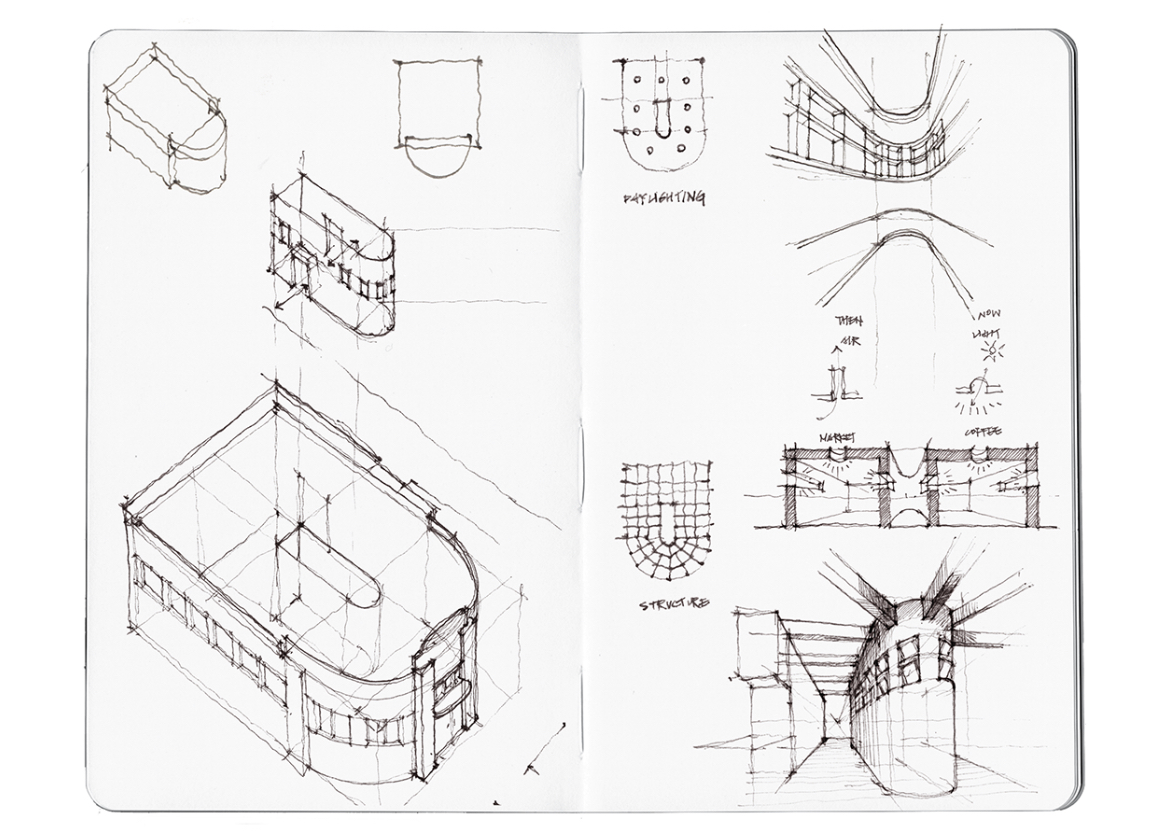 DAYLIGHTING
THEN
AIR
NOW
LIGHT
MARKET
COFFEE
STRUCTURE